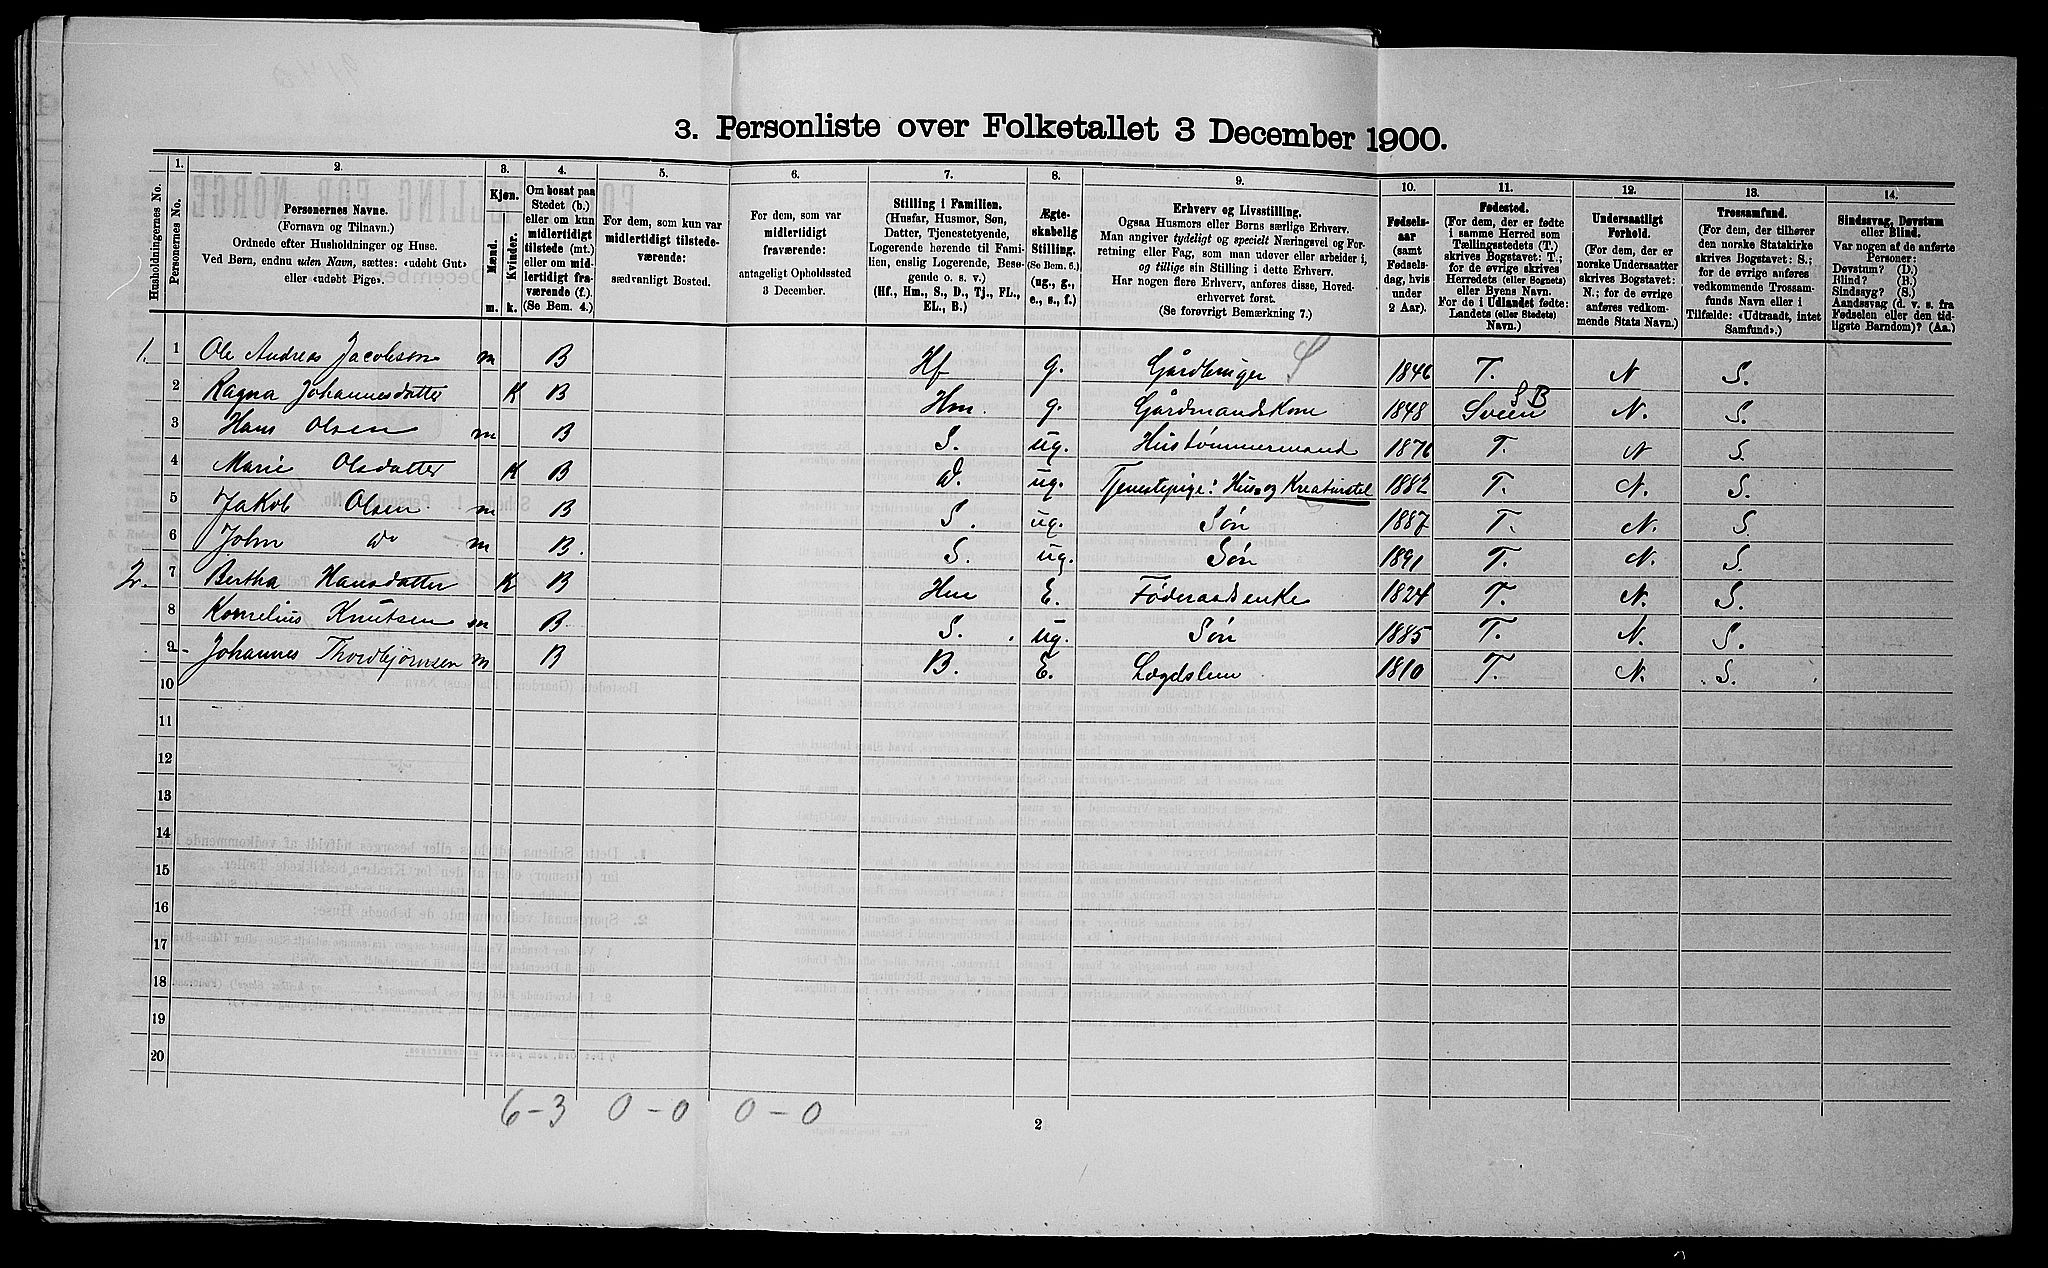 3. Personliste over Folketallet 3 December 1900.
Husholdningernes No.
1. Personernes No.
2. Personernes Navne. (Fornavn og Tilnavn.) Ordnede efter Husholdninger og Huse. Ved Børn, endnu uden Navn, sættes: «udøbt Gut» eller «udøbt Pige».
3. Kjøn. Mænd. m. Kvinder. k.
4. Om bosat paa Stedet (b.) eller om kun midlertidigt tilstede (mt.) eller om midlertidigt fraværende (f.) (Se Bem. 4.)
5. For dem, som kun var midlertidigt tilstedeværende: sædvanligt Bosted.
6. For dem, som var midlertidigt fraværende: antageligt Opholdssted 3 December.
7. Stilling i Familien. (Husfar, Husmor, Søn, Datter, Tjenestetyende, Logerende hørende til Familien, enslig Logerende, Besøgende o. s. v.) (Hf., Hm., S., D., Tj., FL., EL., B.)
8. Ægteskabelig Stilling. (Se Bem. 6.) (ug., g., e., s., f.)
9. Erhverv og Livsstilling. Ogsaa Husmors eller Børns særlige Erhverv. Man angiver tydeligt og specielt Næringsvei og Forretning eller Fag, som man udøver eller arbeider i, og tillige sin Stilling i dette Erhverv. Har nogen flere Erhverv, anføres disse, Hovederhvervet først. (Se forøvrigt Bemærkning 7.)
10. Fødselsaar (samt Fødselsdag, hvis under 2 Aar).
11. Fødested. (For dem, der er fødte i samme Herred som Tællingsstedets (T.) skrives Bogstavet: T.; for de øvrige skrives Herredets (eller Sognets) eller Byens Navn. For de i Udlandet fødte: Landets (eller Stedets) Navn.)
12. Undersaatligt Forhold. (For dem, der er norske Undersaatter skrives Bogstavet: N.; for de øvrige anføres vedkommende Stats Navn.)
13. Trossamfund. (For dem, der tilhører den norske Statskirke skrives Bogstavet: S.; for de øvrige anføres vedkommende Trossamfunds Navn eller i Tilfælde: «Udtraadt, intet Samfund».)
14. Sindssvag, Døvstum eller Blind. Var nogen af de anførte Personer: Døvstum? (D.) Blind? (B.) Sindssyg? (S.) Aandssvag (d. v. s. fra Fødselen eller den tidligste Barndom)? (Aa.)
1. 1 Ole Andreas Jacobsen m B Hf g. Gårdbruger S 1846 T. N S.
2 Ragna Johannesdatter K B Hm. g. Gårdmandskone 1848 Sveen SB N. S.
3 Hans Olsen m B S. ug. Hustømmermand 1876 T. N S.
4 Marie Olsdatter K B d. ug. Tjenestepige: Hus og Kreaturstel 1882 T. N. S.
5 Jakob Olsen m B S. ug. Søn 1887 T. N. S.
6 John do m B. S. ug. Søn 1891 T. N. S.
2. 7 Bertha Hansdatter K B Hm E. Føderaadsenke 1824 T. N. S.
8 Kornelius Knutsen m B S. ug. Søn 1885 T. N. S.
9 Johannes Thordbjørnsen m B B. E. Lægdslem 1810 T. N. S.
10
11
12
13
14
15
16
17
18
19
20
6-3 0-0 0-0
2